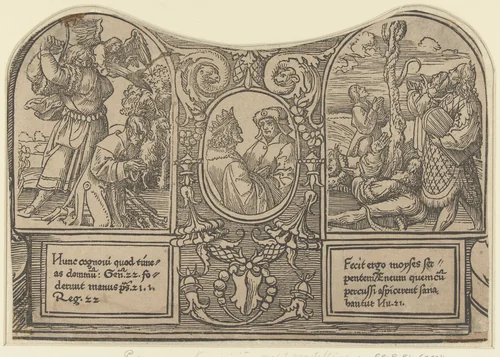 Nunc cognovi quod time-
as dominū: Gen. 22. fo-
derunt manus ps. 21. 1.
Reg. 22
Fecit ergo moyses ser-
pentem Eneum quem cū
percussi aspicerent sana
bantur Nu. 21.